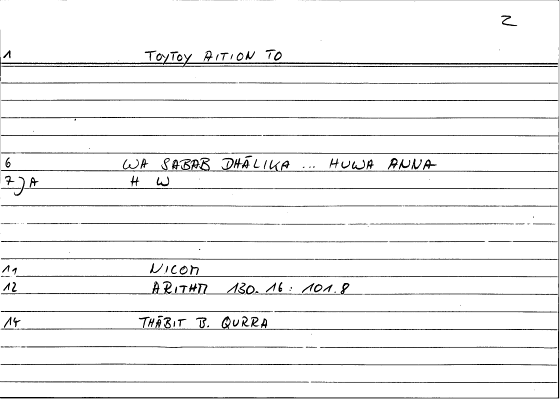 2
1 ΤΟΥΤΟΥ ΑΙΤΙΟΝ ΤΟ
6 WA SABAB DHĀLIKA ... HUWA ANNA
7)A H W
11 NICOM
12 ARITHM 130.16 : 101.8
14 THĀBIT B. QURRA